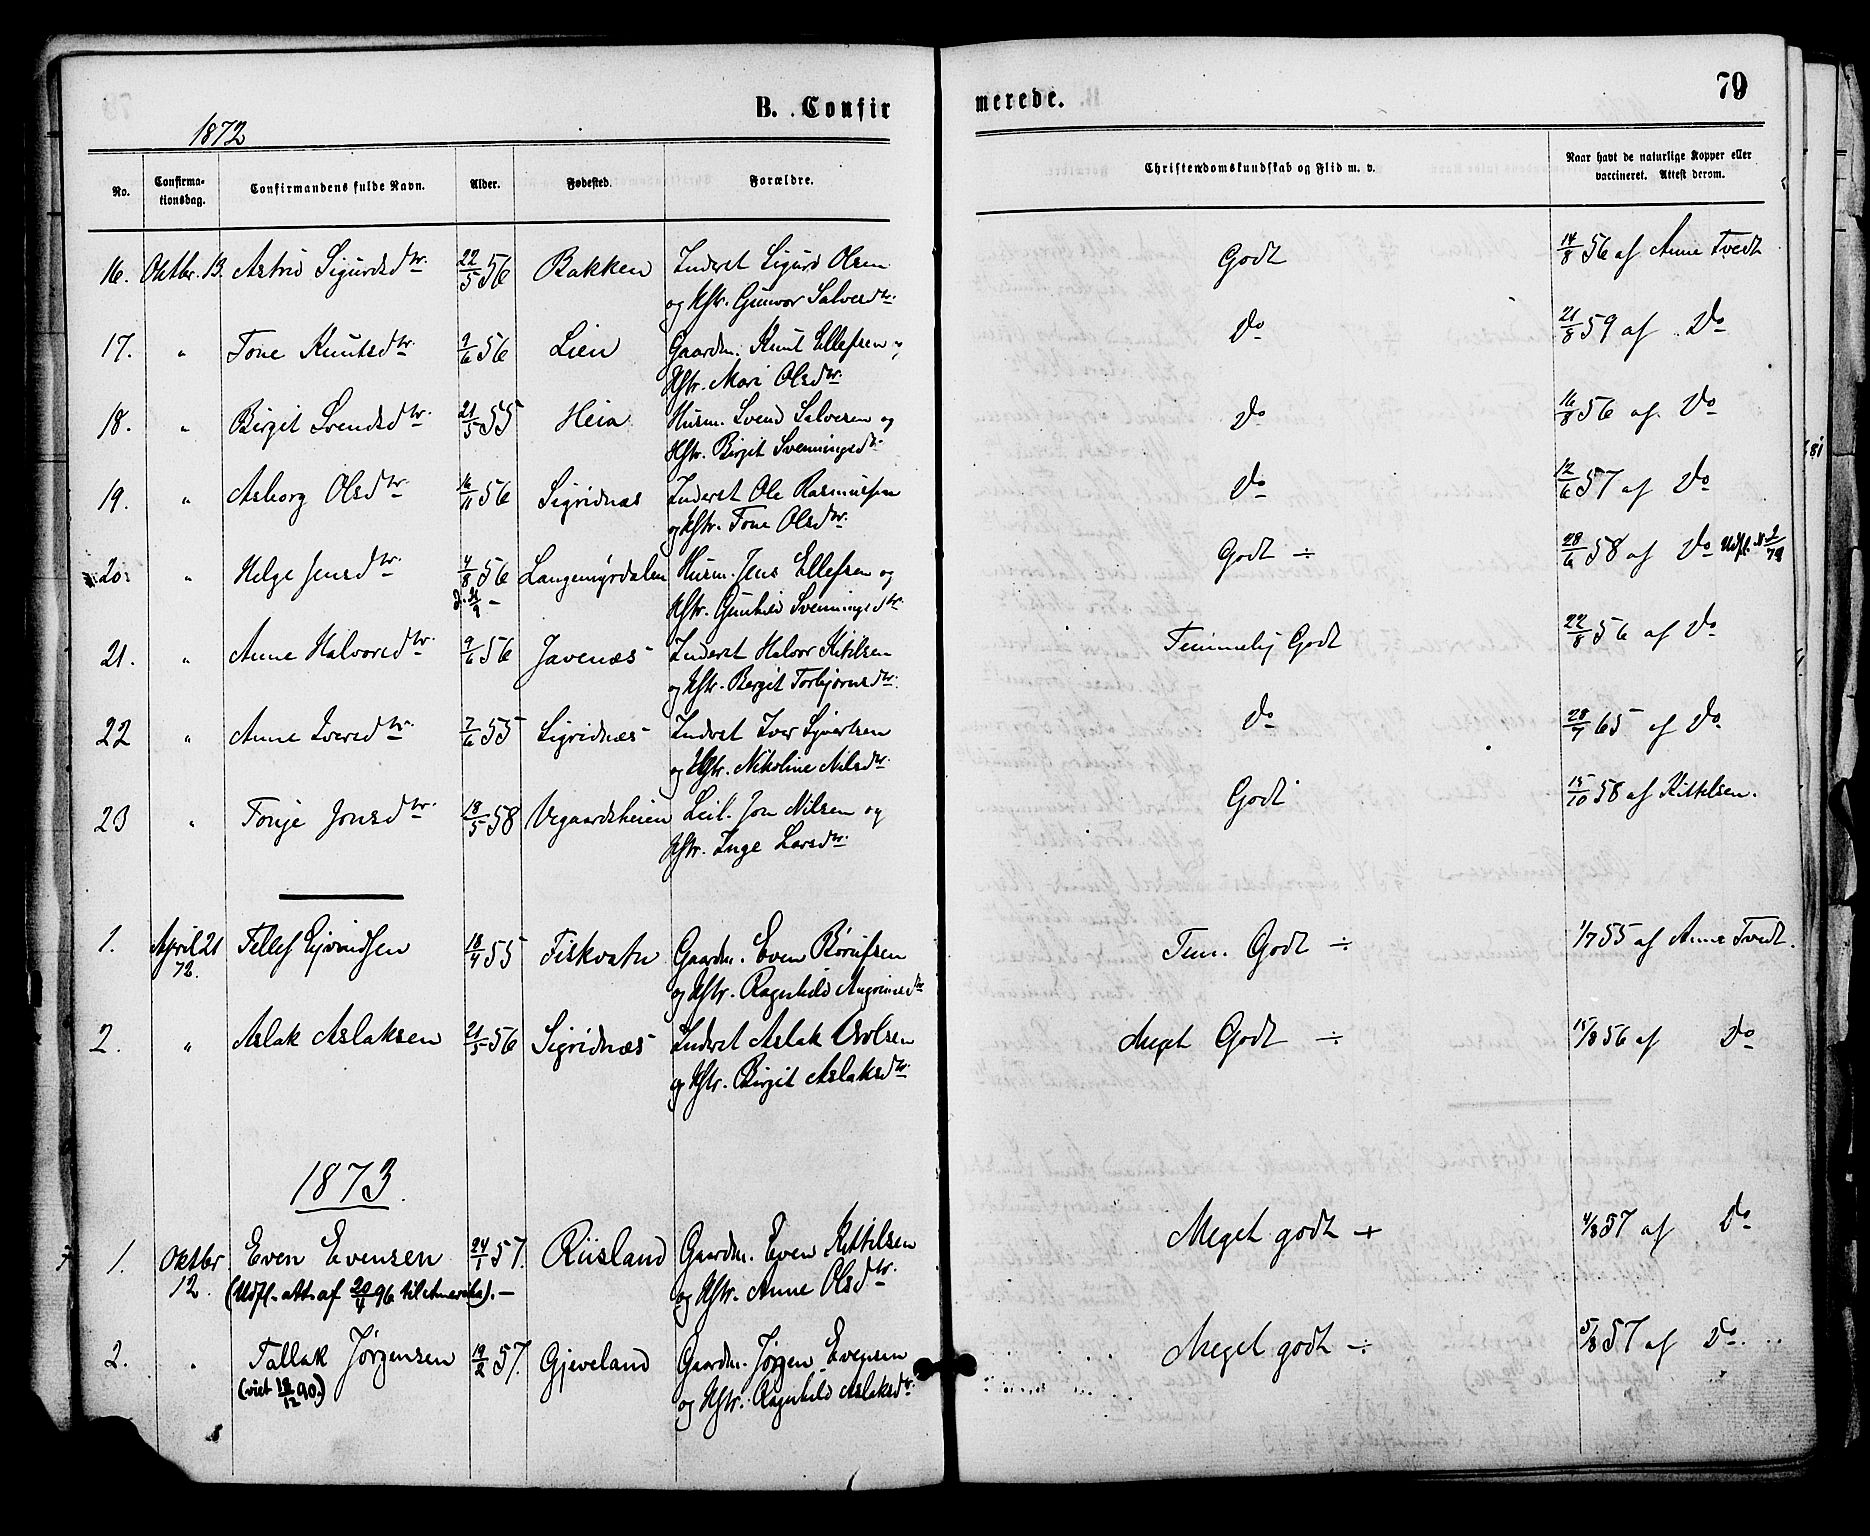 B. Confirmerede.
79
1872
No. Confirmationsdag. Confirmandens fulde Navn. Alder. Fødested. Forældre. Christendomskundskab og Flid m. v. Naar havt de naturlige Kopper eller vaccineret. Attest derom.
16. Oktbr. 13. Astrid Sigurdsdtr. 22/5 56 Bakken Inderst Sigurd Olsen Godt 14/8 56 af Anne Tvedt
og Hstr. Gunvor Salvesdtr.
17. " Tone Knutsdtr 9/6 56 Lien Gaardm. Knut Ellefsen og Do 21/8 59 af Do
Hstr. Mari Olsdtr.
18. " Birgit Svendsdtr. 21/5 55 Heia Husm. Svend Salvesen og Do 16/8 56 af Do
Hstr. Birgit Svenningsdtr.
19. " Asborg Olsdtr. 16/11 56 Sigridnæs Inderst Ole Rasmussen Do 12/6 57 af Do
og Hstr. Tone Olsdtr.
20. " Helge Jensdtr. 4/8 56 Langemyrdalen Husm. Jens Ellefsen og Godt ÷ 28/6 58 af Do
Hstr. Gunhild Svenningsdtr
21. " Anne Halvorsdtr. 9/6 56 Javenæs Inderst Halvor Kitilsen Temmelig Godt 22/8 56 af Do
og Hstr. Birgit Torbjørnsdtr.
22 " Anne Iversdtr. 7/6 55 Sigridnæs Inderst Iver Sjvertsen Do 28/7 65 af Do
og Hstr. Nikoline Nilsdtr.
23 " Tonje Jonsdtr. 18/5 58 Vegaardsheien Leil. Jon Nilsen og Godt 15/10 58 af Kittelsen.
Hstr. Inge Larsdtr.
1. April 21 72. Tellef Ejvindsen 18/4 55 Fiskvatn Gaardm. Even Rørufsen Tem. Godt ÷ 1/7 55 af Anne Tvedt.
og Hstr. Ragnhild
2. " Aslak Aslaksen 21/5 56 Sigridnæs Inderst Aslak Meget Godt ÷ 15/8 56 af Do
og Hstr. Birgit Aslaksdtr.
1873.
1. Oktbr 12. Even Evensen 24/1 57. Riisland Gaardm. Even Kittilsen Meget godt + 4/8 57 af Do
(Udfl. att. af 20/4 96 til Amerika). — og Hstr. Anne Olsdtr.
2. " Tallak Jørgensen 19/2 57. Gjeveland Gaardm. Jørgen Evensen Meget godt ÷ 5/8 57 af Do.
(viet 18/12 90.) og Hstr. Ragnhild Aslaksdtr.